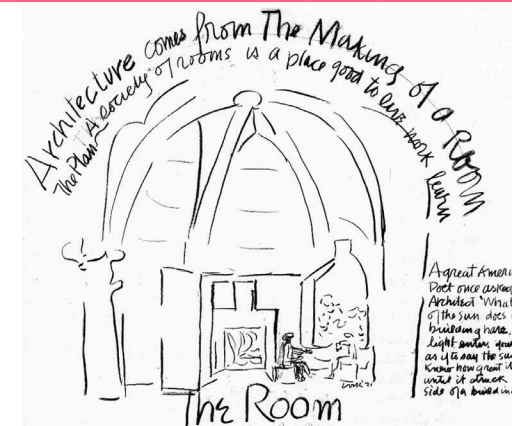 Architecture comes from The Making of a Room
The Plan A society of rooms is a place good to live work learn
A great Ameri
Poet once asked
Architect 'What
of the sun does
building have,
light enters your
as if to say the sun
Knew how great it
until it struck
side of a building
The Room